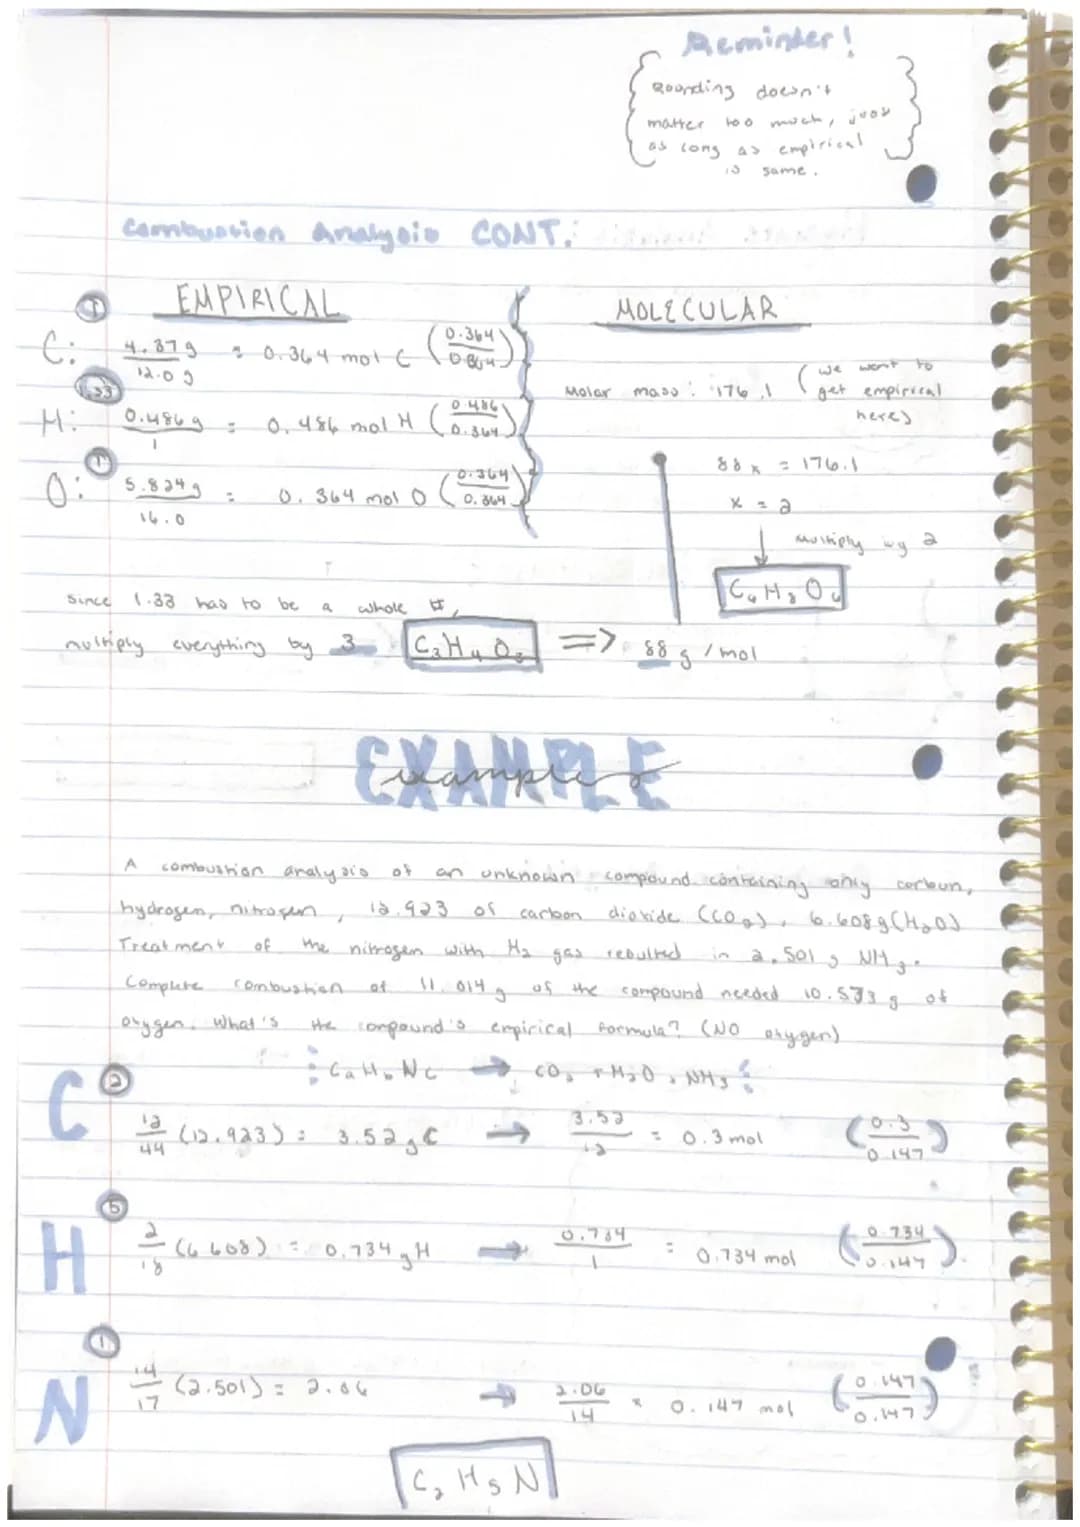 Reminder!
Rounding doesn't
matter too much, just
as long as empirical
is same.
Combustion Analysis CONT.
EMPIRICAL
MOLECULAR
1
C: 4.37g / 12.0g = 0.364 mol C (0.364 / 0.364)
Molar mass: 176.1 (we want to
get empirical
here)
1.33
H: 0.486g / 1 = 0.486 mol H (0.486 / 0.364)
1
O: 5.824g / 16.0 = 0.364 mol O (0.364 / 0.364)
88x = 176.1
x = 2
↓ multiply by 2
C6H8O6
Since 1.33 has to be a whole #,
multiply everything by 3 C3H4O3 => 88 g/mol
EXAMPLE
example
A combustion analysis of an unknown compound containing only carbon,
hydrogen, nitrogen, 12.923 of carbon dioxide (CO2), 6.608g (H2O)
Treatment of the nitrogen with H2 gas resulted in 2.501 g NH3.
Complete combustion of 11.014g of the compound needed 10.573 g of
oxygen. What's the compound's empirical formula? (NO oxygen)
CaHbNc → CO2 + H2O, NH3
C 2
12/44 (12.923) = 3.52g C → 3.52/12 = 0.3 mol (0.3 / 0.147)
H 5
2/18 (6.608) = 0.734g H → 0.734/1 = 0.734 mol (0.734 / 0.147)
N 1
14/17 (2.501) = 2.06 → 2.06/14 = 0.147 mol (0.147 / 0.147)
C2H5N